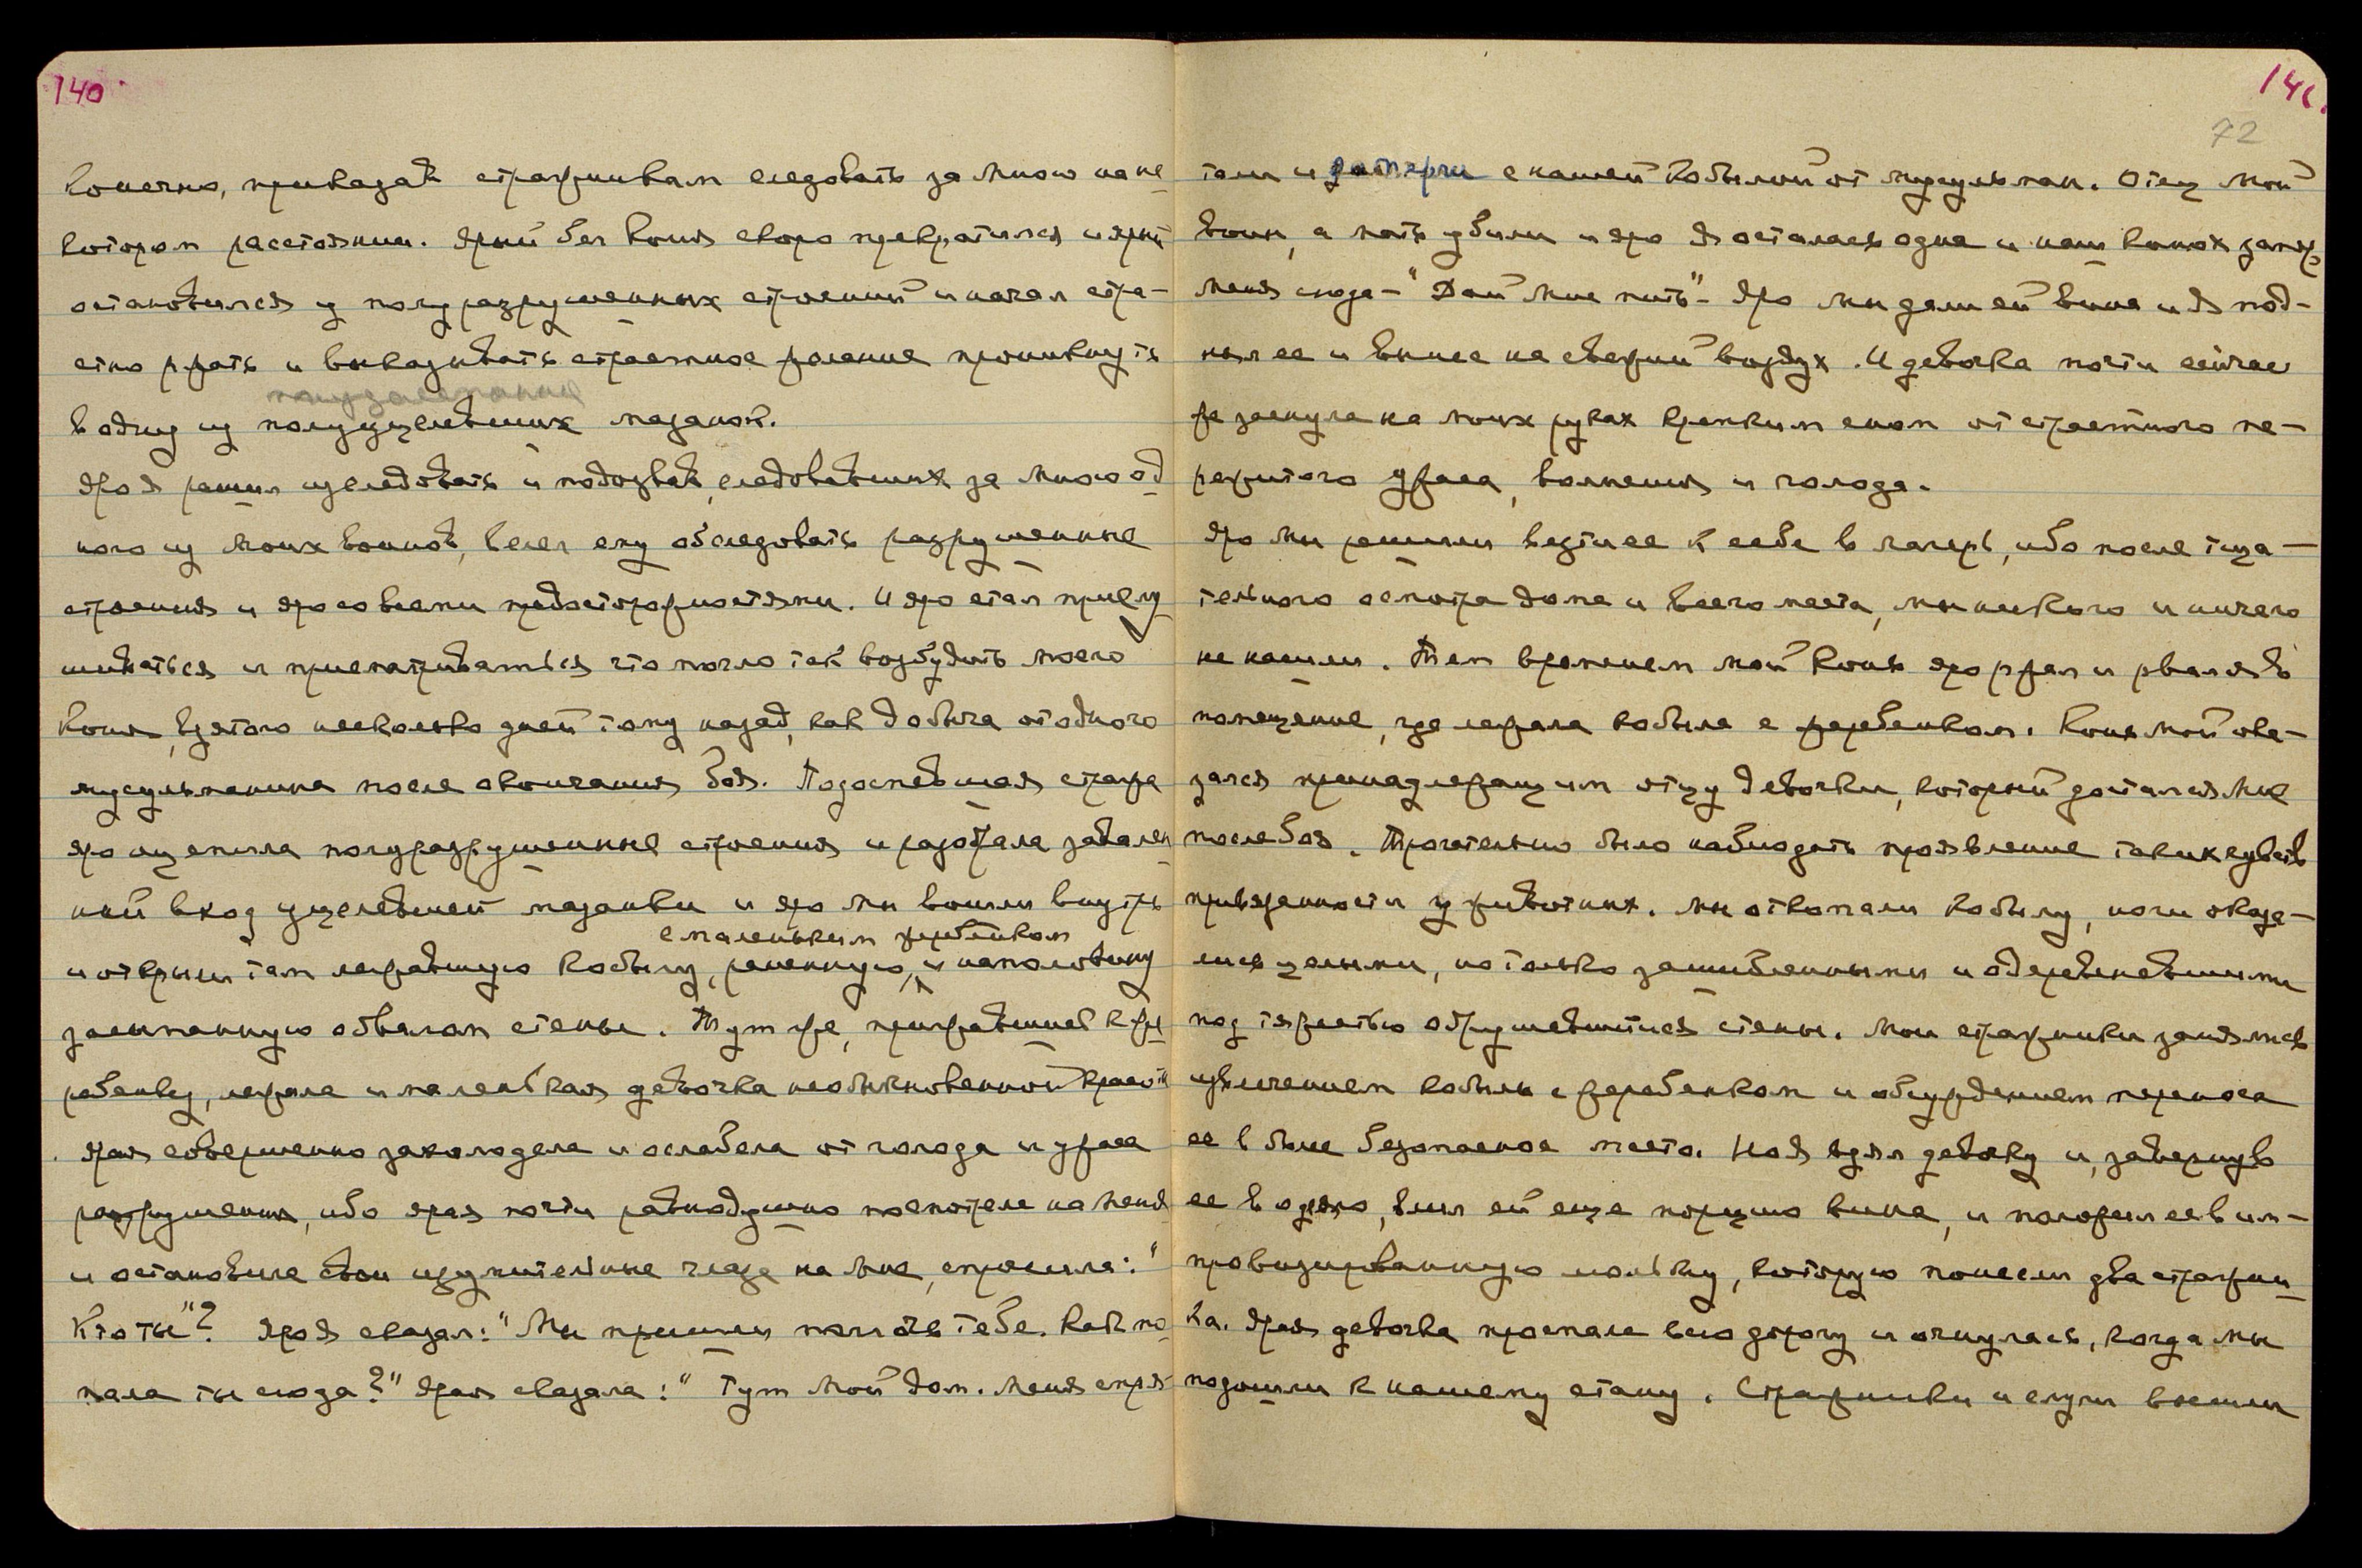 140
конечно, приказав стражникам следовать за мною на не
котором расстоянии. Ярый бег коня скоро прекратился и ярый
остановился у полуразрушенных строений и начал стра-
стно ржать и выказывать страстное желание проникнуть
в одну из полууцелевших мазанок.
Яро я решил исследовать и подозвав, следовавших за мною од
ного из моих воинов, велел ему обследовать разрушенные
строения и яро со всеми предосторожностями. И яро стал прислу
шиваться и присматриваться что могло так возбудить моего
коня, взятого несколько дней тому назад, как добыча от одного
мусульманина после окончания боя. Подоспевшая стража
яро оцепила полуразрушенные строения и разобрала завален
ный вход уцелевшей мазанки и яро мы вошли внутрь
с маленьким жеребенком
и открыли там лежавшую кобылу, раненную, и наполовину
засыпанную обвалом стены. Тут же, прижавшись к же
ребенку, лежала и маленькая девочка необыкновенной красоты
. Ярая совершенно захолодела и ослабела от голода и ужаса
разрушения, ибо ярая почти равнодушно посмотрела на меня
и остановила свои изумительные глаза на мне, спросила: "
Кто ты"? Яро я сказал: "Мы пришли помочь тебе. Как по
пала ты сюда?" Ярая сказала: "Тут мой дом. Меня спря-
141.
72
тали и заперли с нашей кобылой от мусульман. Отец мой
воин, а мать убили и яро я осталась одна и наш конюх запер
меня сюда - "Дай мне пить" - Яро мы дали ей вина и я под-
нял ее и вынес на свежий воздух. И девочка почти сейчас
же заснула на моих руках крепким сном от страстного пе-
режитого ужаса, волнения и голода.
Яро мы решили везти ее к себе в лагерь, ибо после тща-
тельного осмотра дома и всего места, мы никого и ничего
не нашли. Тем временем мой конь яро ржал и рвался в
помещение, где лежала кобыла с жеребенком. Конь мой ока-
зался принадлежащим отцу девочки, который достался мне
после боя. Трогательно было наблюдать проявление таких чувств
привязанности у животных. Мы откопали кобылу, ноги оказа-
лись целыми, но только зашибленными и одеревеневшими
под тяжестью обрушившейся стены. Мои стражники занялись
извлечением кобылы с жеребенком и обсуждением переноса
ее в более безопасное место. Но я взял девочку и, завернув
ее в одеяло, влил ей еще порцию вина, и положил ее в им-
провизированную люльку, которую понесли два стражни
ка. Ярая девочка проспала всю дорогу и очнулась, когда мы
подошли к нашему стану. Стражники и слуги внесли